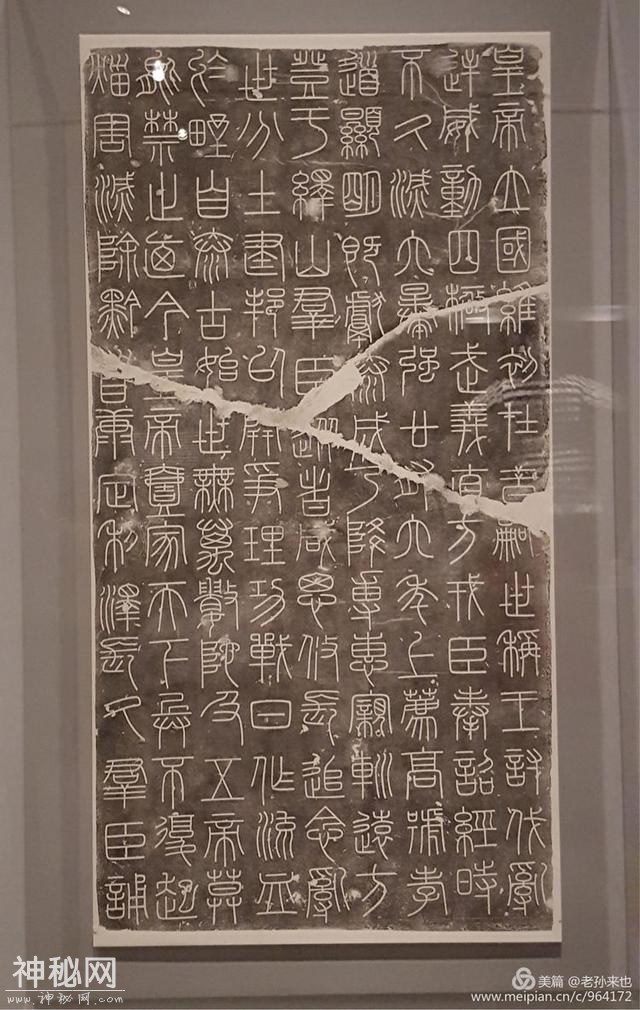 皇帝立國維初在昔嗣世稱王討伐亂
逆威動四極武義直方戎臣奉詔經時
不久滅六暴強廿有六年上薦高號孝
道顯明既獻泰成乃降專惠寴巡遠方
登于繹山羣臣從者咸思攸長追念亂
世分土建邦以開爭理功戰日作流血
於野自泰古始世無萬數陀及五帝莫
能禁止廼今皇帝壹家天下兵不復起
災害滅除黔首康定利澤長久羣臣誦
神秘网
www.神秘网.com
美篇 @老孙来也
www.meipian.cn/c/964172